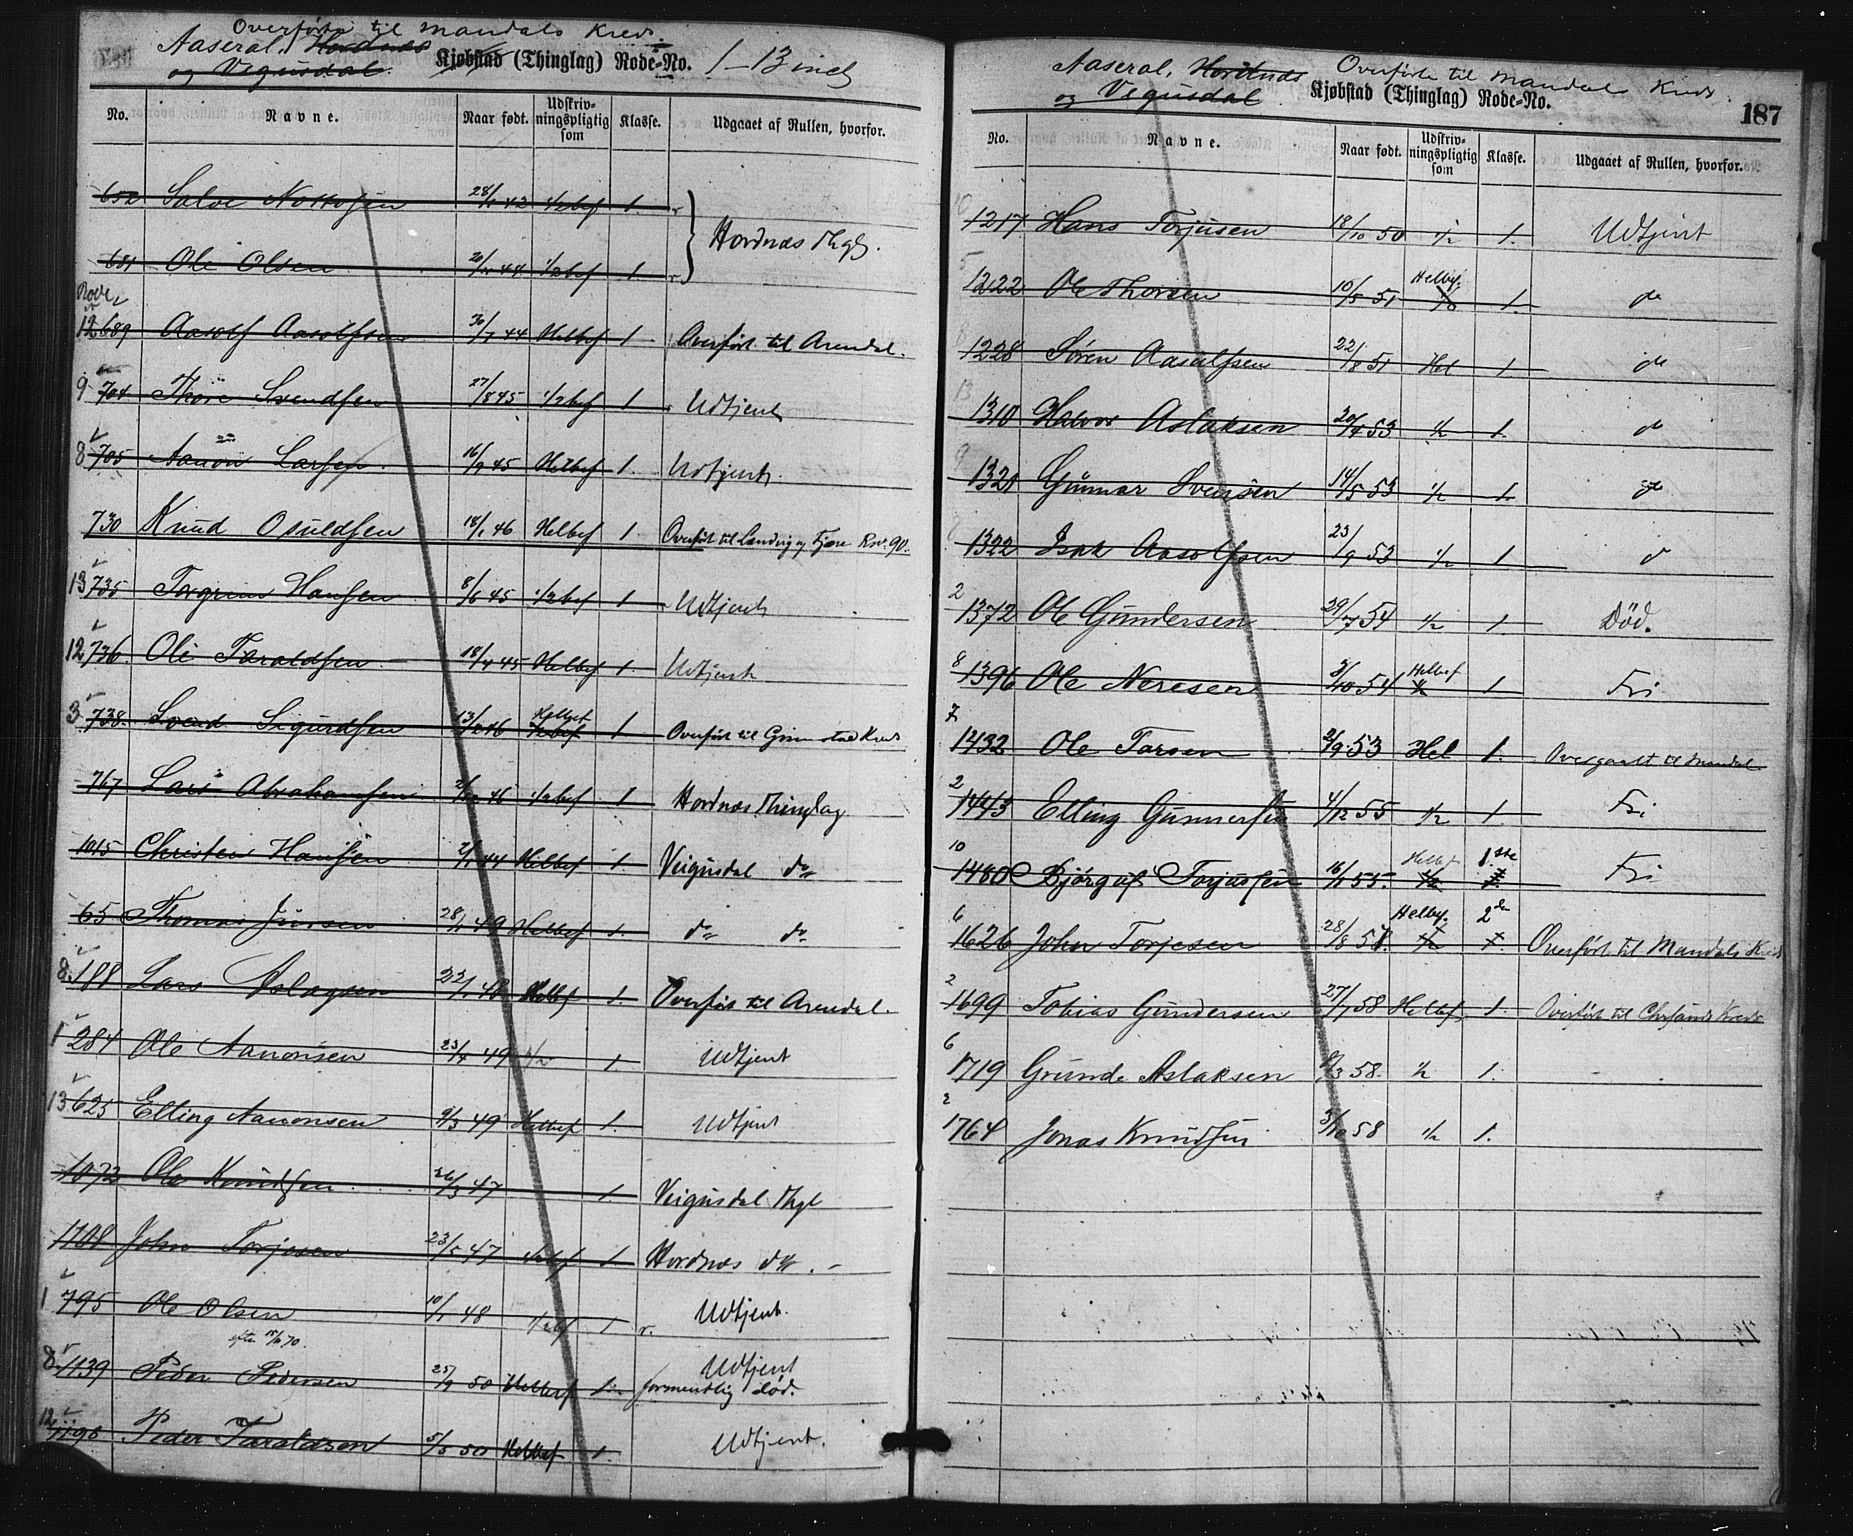 Overførte til Mandals Kreds.
Aaseral, Hordnæs
og Vegusdal. Kjøbstad (Thinglag) Rode-No. 1-13 incl
No. Navne. Naar født. Udskrivningspligtig som Klasse. Udgaaet af Rullen, hvorfor.
652 Salve 28/1 42 1/2bef 1.
681 Ole Olsen 44 1/2bef 1. Hordnæs Thgl.
Rode
12 689 Aasolf Aasolfsen 30/7 44 Helbef 1 Overført til Arendal.
9 704 Thore Svendsen 27/8 45 1/2bef 1 Udtjent
8 705 Aanon Larsen 16/9 45 Helbef 1. Udtjent.
730 Knud Osuldsen 18/1 46 Helbef 1 Overført til Landvig og Fjære Rsv. 90.
13 735 Torgrim Hansen 8/6 45 1/2bef 1 Udtjent
12 736. Ole Taraldsen 18/4 45 Helbef 1. Udtjent
3 738. Svend Sigurdsen 46 Helbef 1/2bef 1 Overført til Grimstad Kreds
767 Lars Abrahamsen 46 1/2bef 1 Hordnæs Thinglag
1015 Christen Hansen 2/1 44 Helbef 1. Veigusdal do
65 Thomas Jensen 28/1 49 Helbef 1. do do
8. 188 Lars Aslagsen 22/1 48 Helbef 1. Overført til Arendal.
1 284 Ole Aanonsen 23/4 49 1/2 1 Udtjent
13 625 Elling Aanonsen 9/3 49 Helbef 1. Udtjent
1073 Ole Knudsen 26/3 47 1. Veigusdal Thgl
1108 John Torjesen 23/5 47 1/2bef 1 Hordnæs do. -
1 795 Ole Olsen 10/1 48 1/2bef 1 r. Udtjent.
efter 15/6 70. Udtjent
8. 1139 Peder Pedersen 25/9 50 Helbef 1. formentlig død.
12 1198 Peder Taraldsen 5/5 50 Helbef 1. Udtjent.
Aaseral, Hordnæs Overførte til Mandals Kreds.
og Vegusdal Kjøbstad (Thinglag) Rode-No. 187
No. Navne. Naar født. Udskrivningspligtig som Klasse. Udgaaet af Rullen, hvorfor.
10 1217 Hans Torjusen 18/10 50 1/2 1. Udtjent
5 1222 Ole Thorsen 10/5 51 Helbef. 1. do
8 1228 Søren Aasulfsen 22/8 51 Hel 1. do
13 1310 Halvor Aslaksen 20/4 53 1/2 1. do
9 1321 Gunnar Svensen 14/5 53 1/2 1. do
1322 Isak Aasolfsen 23/9 53 1/2 1. do
2 1372 Ole Gundersen 29/7 54 1/2 1. Død.
8 1396 Ole Neresen 3/10 54 Helbef 1 Fri
7 1432 Ole Tarsen 2/9 53 Hel 1. Overgaaet til Mandal
2 1443 Elling Gunnersen 4/12 55 1/2 1. Fri
10 1480 Bjørguf Torjussen 16/1 55. Helbef 1/2 1ste Fri
6 1626 John Torjesen 28/8 58. Helbef. 1/2 2den 1. Overført til Mandals Kreds
2 1699 Tobias Gundersen 27/7 58 Helbef. 1. Overført til Chrsands Kreds
6 1719 Grunde Aslaksen 8/3 58. 1/2 1.
2 1764 Jonas Knudsen 3/10 58 1/2 1.